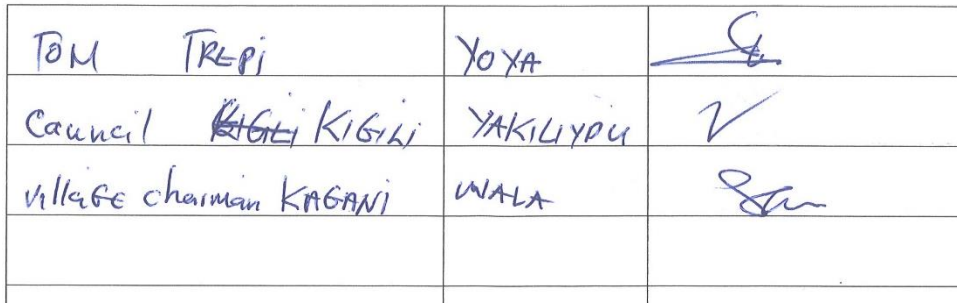 TOM TREPI YOYA
Cauncil KIGILI KIGILI YAKILIYOU
VillaGE chaiman KAGANI WALA